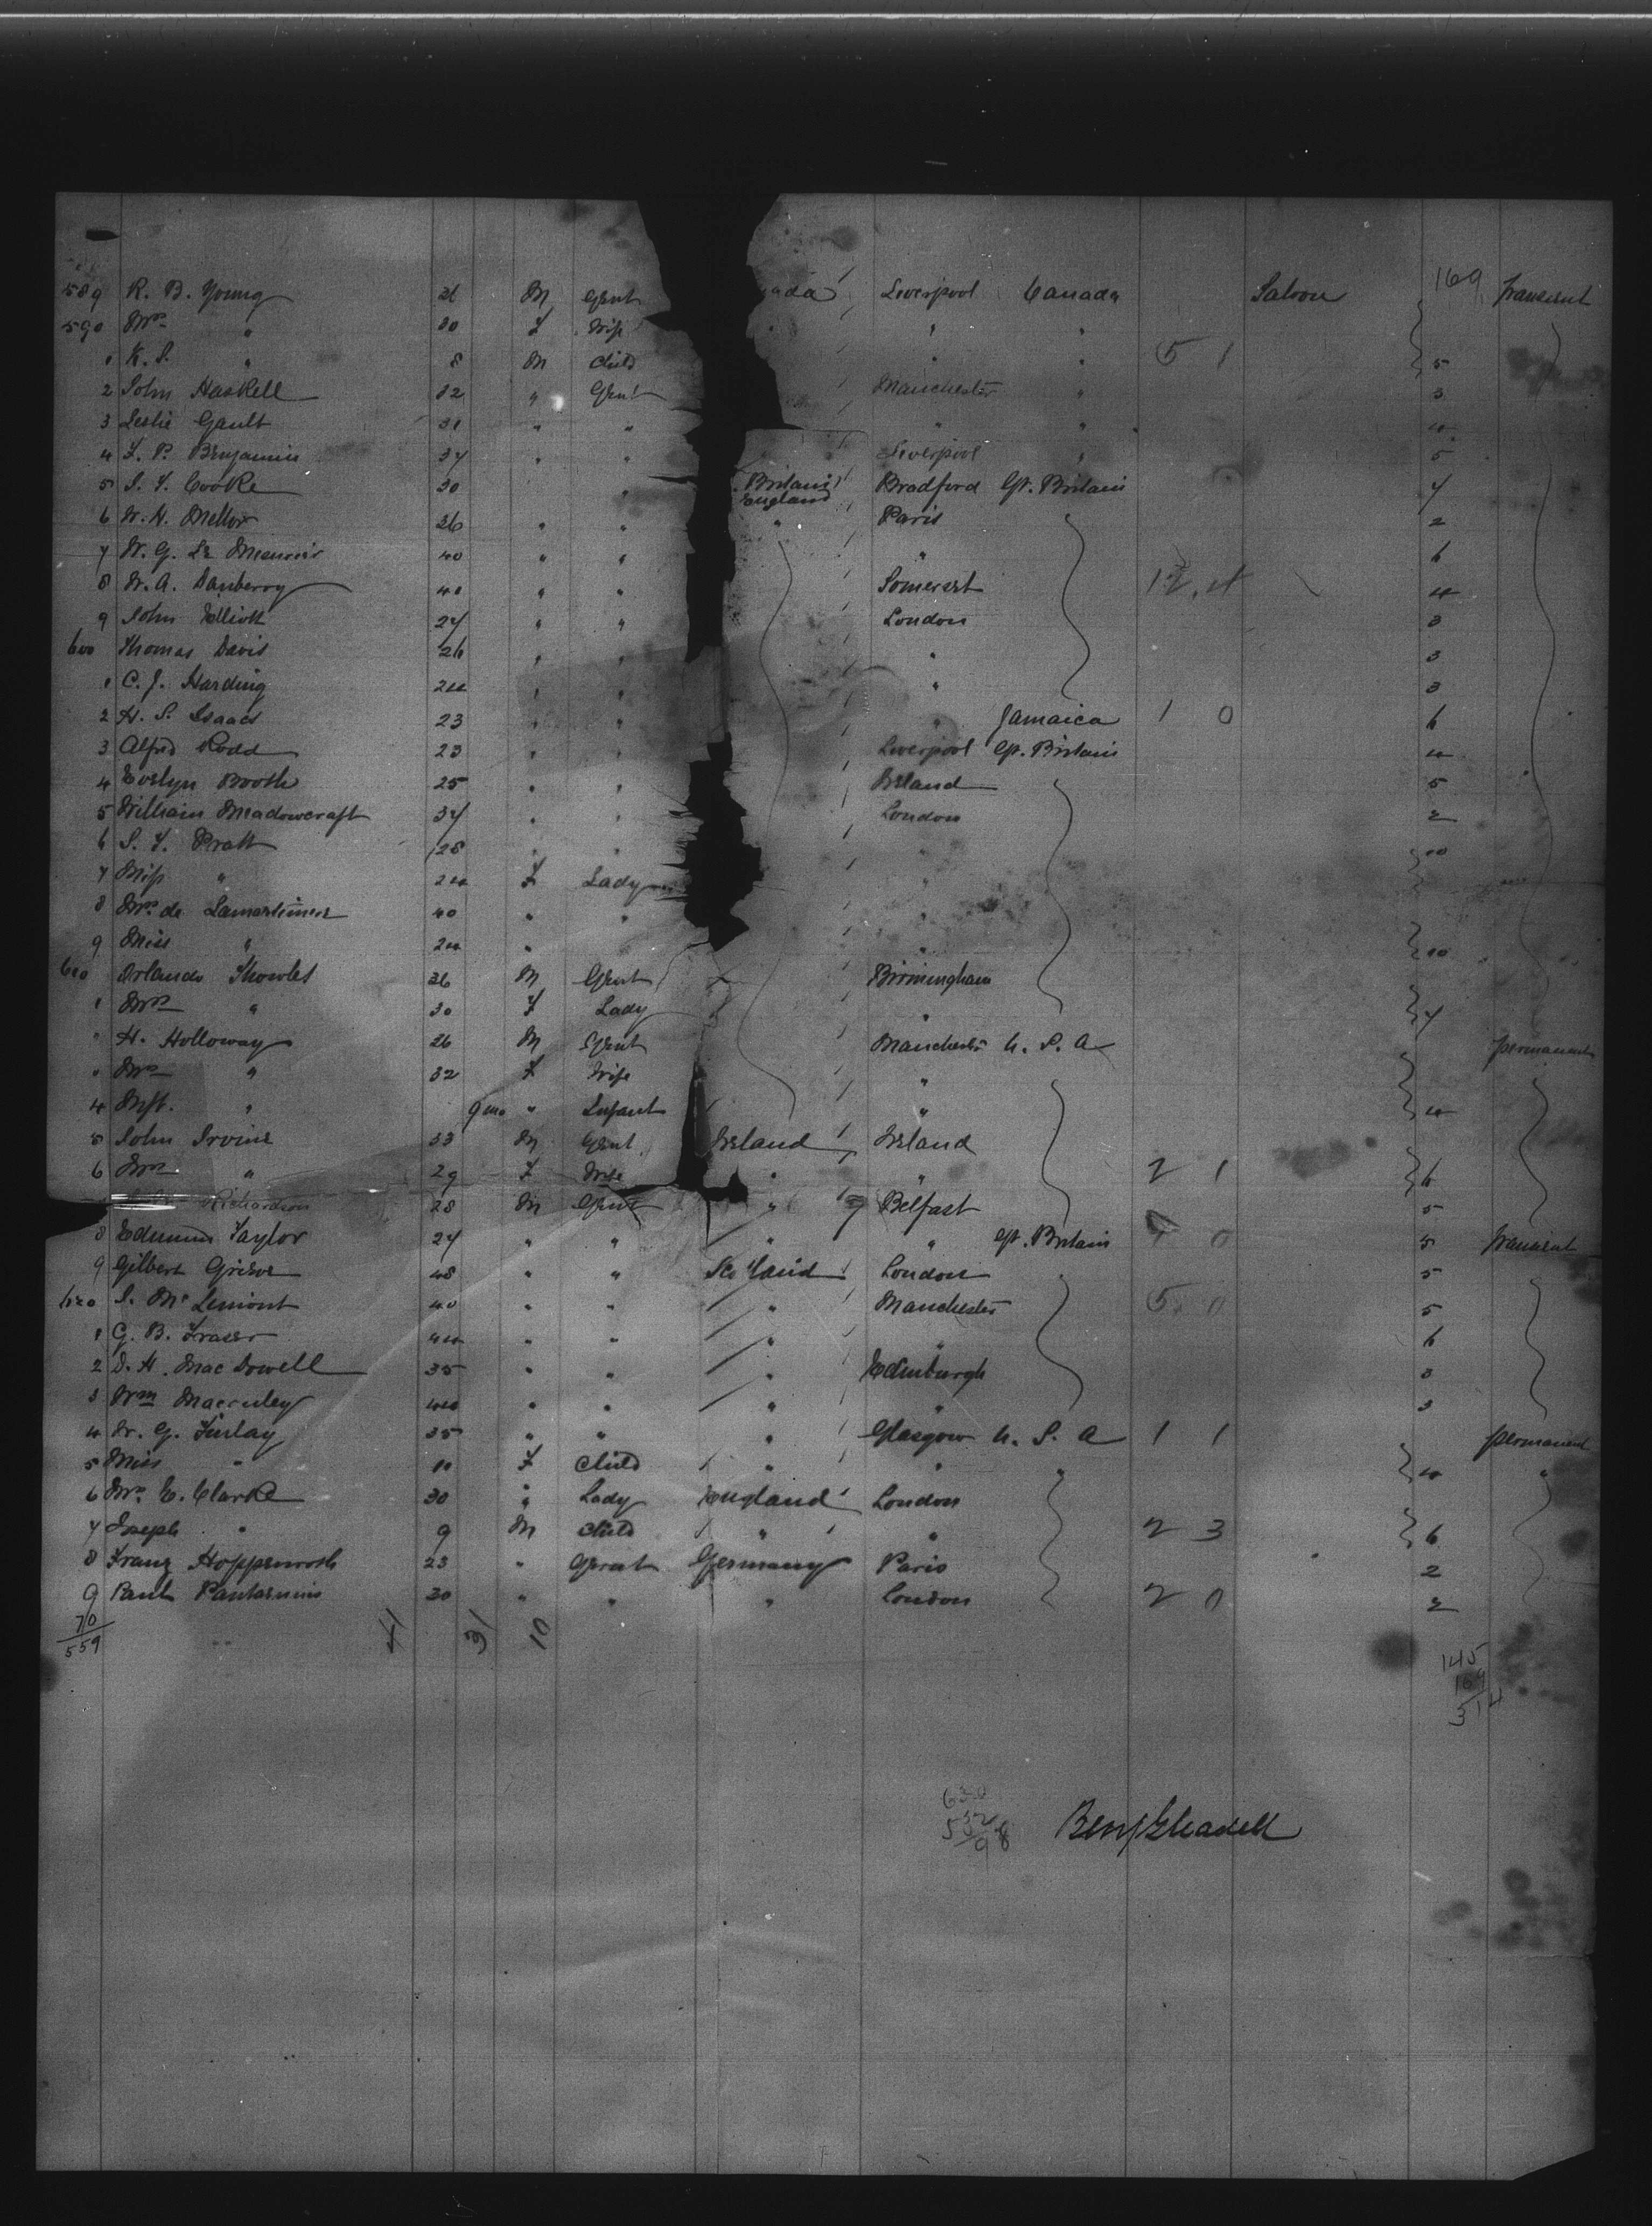 589 R. B. Young 26 M Gent ada Liverpool Canada Saloon 169 transient
590 Mrs " 30 F Wife " "
1 K. S. " 8 M child " " 5 1 5
2 John Haskell 32 " Gent Manchester " 3
3 Leslie Gault 31 " " " " 4
4 F. P. Benjamin 34 " " Liverpool " 5
5 S. F. Cooke 30 " Britain England Bradford Gt. Britain 7
6 W. H. Mellor 26 " " " Paris 2
7 W. G. Le 40 " " " 6
8 W. A. Danberry 40 " " Somerset 4
9 John Elliott 27 " " London 3
600 Thomas Davis 26 " " " 3
1 C. J. Harding 24 " " " 3
2 H. S. Isaacs 23 " " " Jamaica 1 0 6
3 Alfred Rodd 23 " " Liverpool Gt. Britain 4
4 Evelyn Booth 25 " " Ireland 5
5 William Meadowcraft 37 " " London 2
6 S. F. Pratt 28 " " " 10
7 Miss " 24 F Lady "
8 Mrs. de 40 " " "
9 Miss " 24 " " 10
610 Orlando 36 M Gent Birmingham
1 Mrs " 30 F Lady " 7
" H. Holloway 26 M Gent Manchester U. S. A permanent
" Mrs " 32 F Wife "
4 Inft. " 9 mo " Infant " 4
5 John Irvine 33 M Gent Ireland Ireland
6 Mrs " 29 F Wife " " 2 1 6
Richardson 28 M Gent " Belfast 5
8 Edmund Taylor 27 " " " " Gt. Britain 0 5 transient
9 Gilbert Grieve 48 " " Scotland London 5
620 S. Mc Lemont 40 " " " Manchester 5 0 5
1 G. B. Fraser 44 " " " " 6
2 D. H. Mac Dowell 35 " " " Edinburgh 3
3 Wm 44 " " " " 3
4 W. G. Finlay 35 " " " Glasgow U. S. A 1 1 permanent
5 Miss " 10 F child " " " 4 "
6 Mrs. E. Clarke 30 " Lady England London
7 Joseph " 9 M child " " 2 3 6
8 Franz Hoppenworth 23 " Gent Germany Paris 2
9 Paul 30 " " " London 2 0 2
70
559 41 31 10
145
169
314
630
532
98 Benj Gleadell